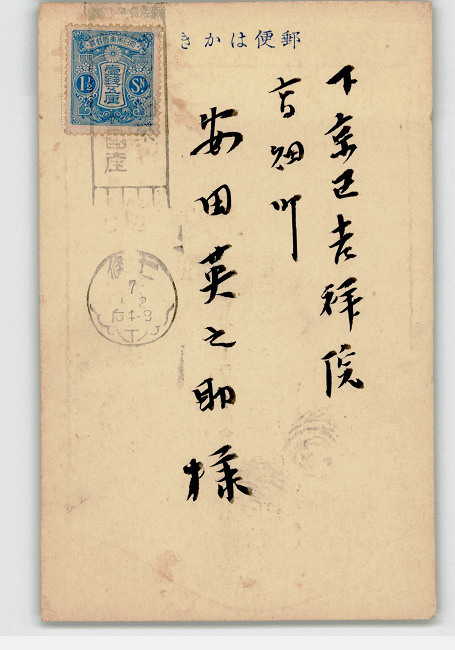 郵便はかき
下京区吉祥院
高畑町
安田英之助様
1½ Sn.
国産
7.
后4-8